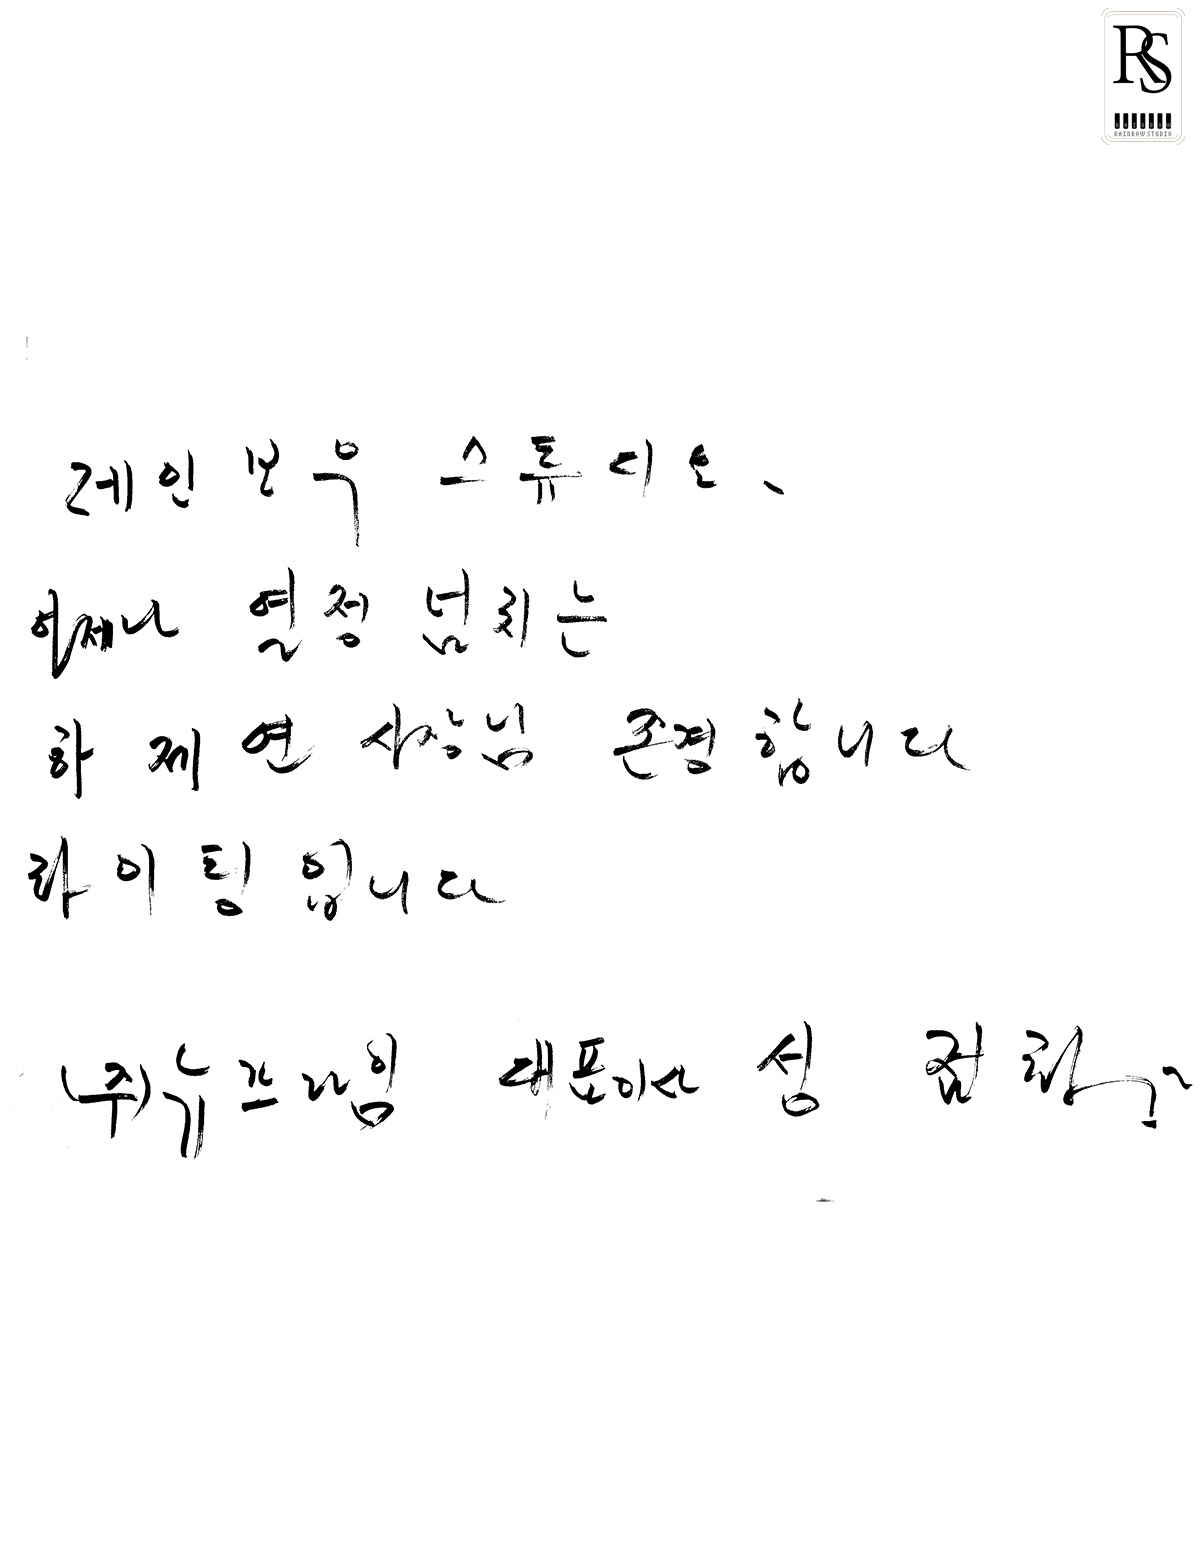 RS
RAINBOW STUDIO
레인보우 스튜디오、
언제나 열정 넘치는
하제연 사장님 존경합니다
라이팅입니다
(주)뉴즈라힘 대표이사 성